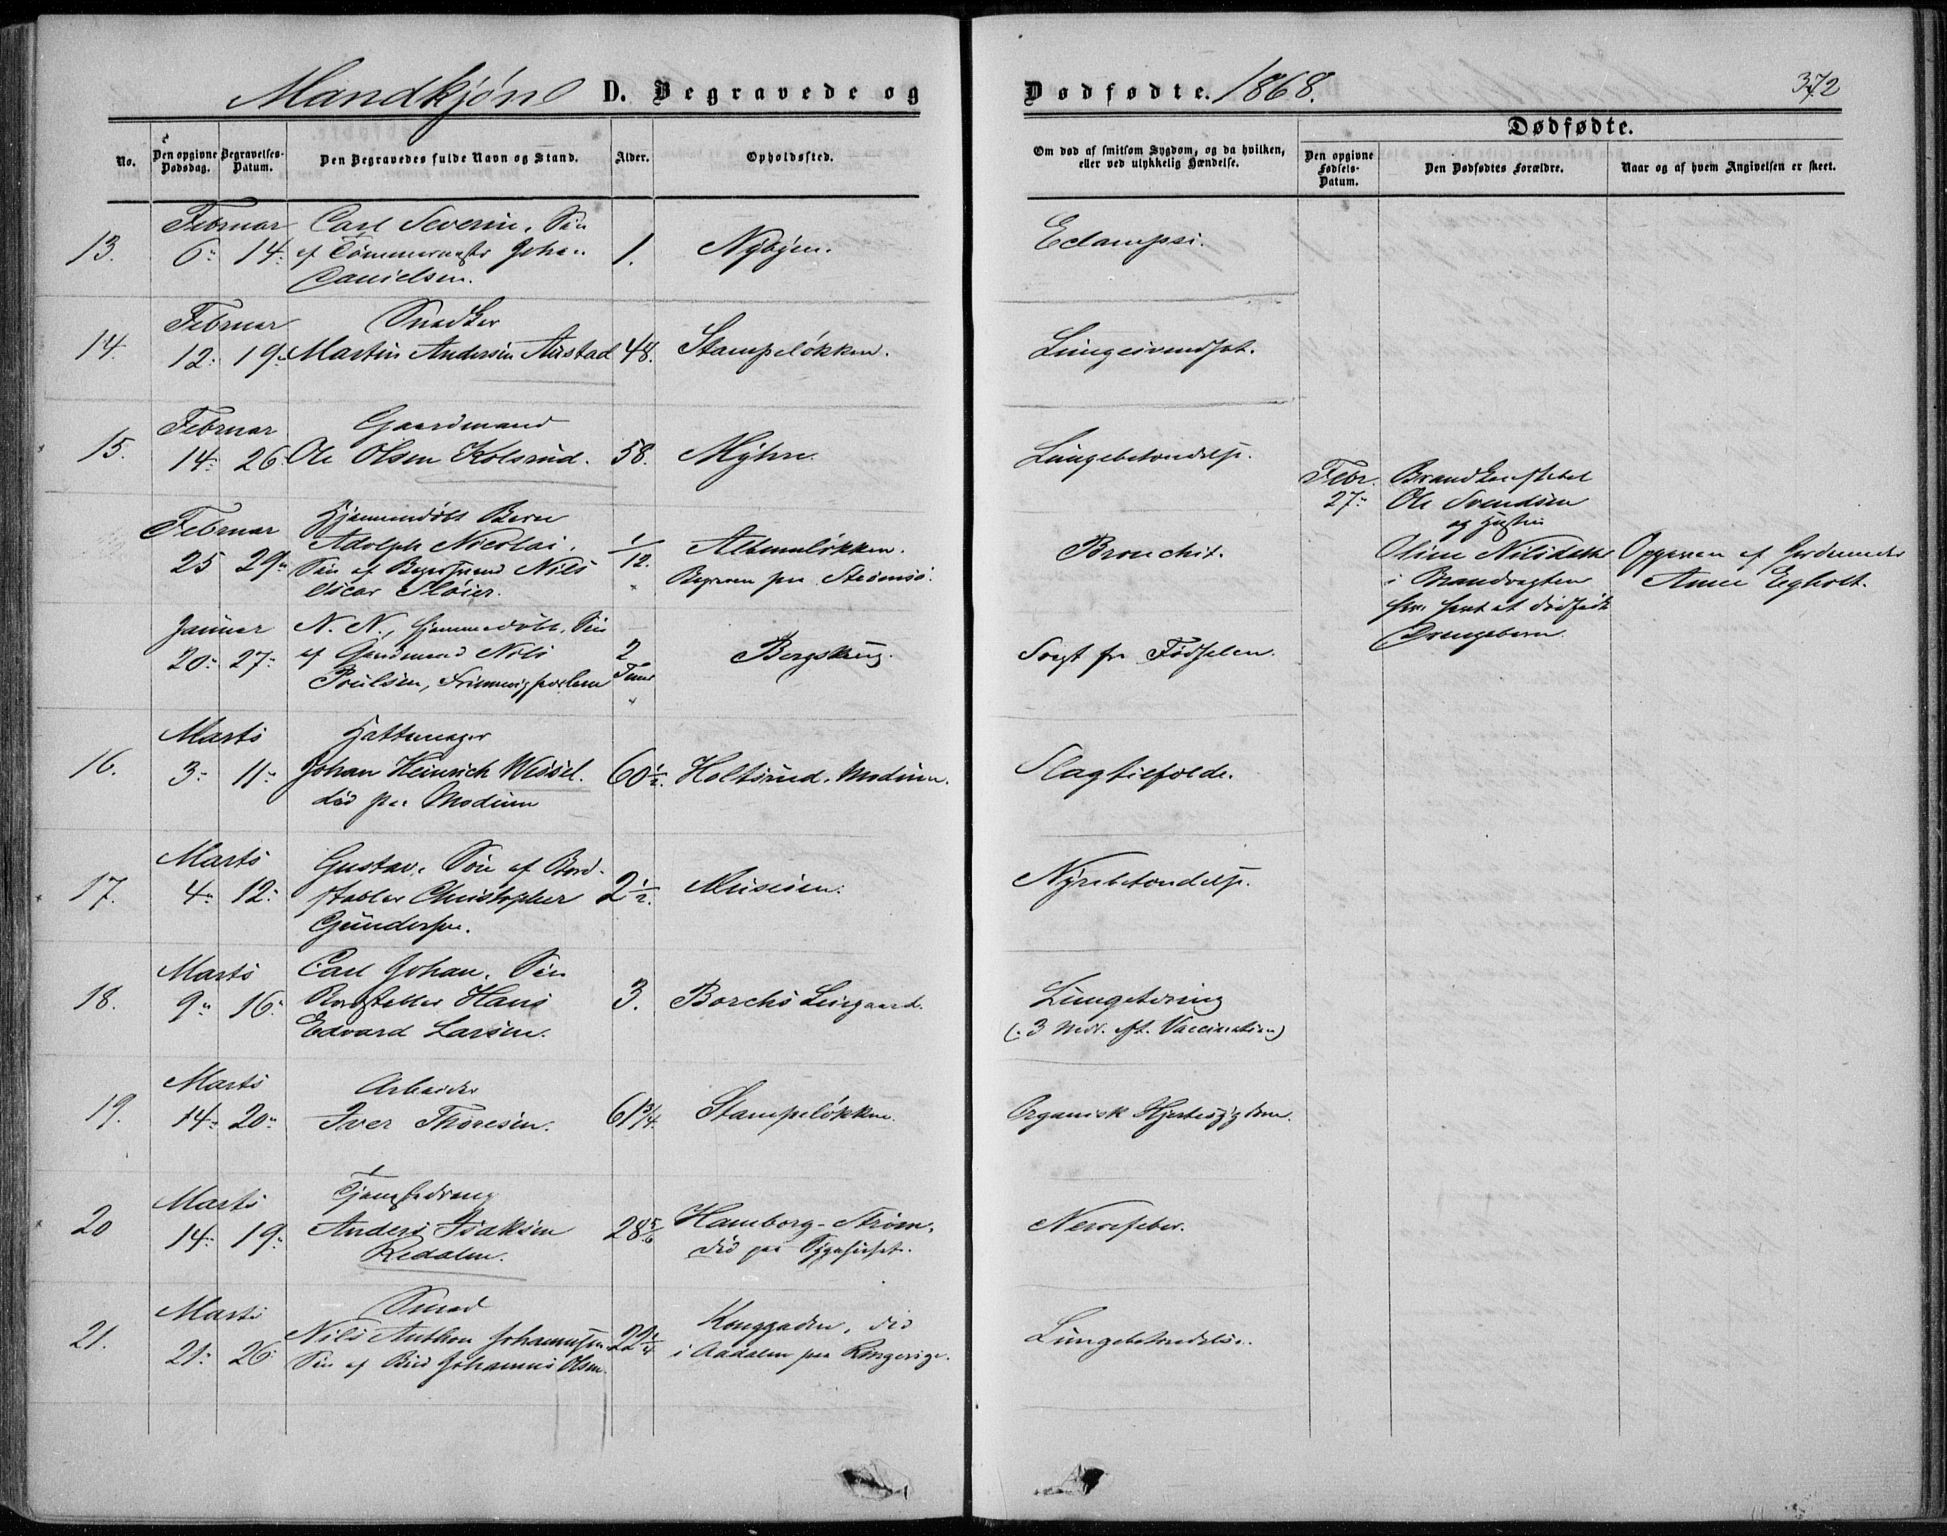 Mandkjøn D. Begravede og Dødfødte. 1868. 372
No. Den opgivne Dødsdag. Begravelses-Datum. Den Begravedes fulde Navn og Stand. Alder. Opholdssted.
Om død af smitsom Sygdom, og da hvilken, eller ved ulykkelig Hændelse.
Dødfødte.
Den opgivne Fødsels-Datum. Den Dødfødtes Forældre. Naar og af hvem Angivelsen er skeet.
Februar Carl Severin, Søn
13. 6 14 af Tømmermester Johan 1. Nybyen. Eclampsi.
Danielsen.
Februar Snedker
14. 12 19 Martin Andersen Austad 48. Stampeløkken.
Februar Gaardmand
15. 14 26 Ole Olsen Kolsrud. 58. Myhre. Lungebetændelse.
Hjemmedøbt Barn
Februar Adolph Nicolai, 1/12. Bronchit.
25 29 Søn af Nils
Oscar Fløier. Begraven paa Strømsø.
Januar N. N., hjemmedøbt, Søn
20 27 af Gaardmand Nils 2 Bergskaug. Svagt fra Fødselen.
Poulsen, Timer
Marts Hattemager
16. 3 11 Johan Heinrich Wessel. 60 1/2. Holtsrud. Modum. Slagtilfælde.
død paa Modum
Marts Gustav, Søn af Bord-
17. 4 12 stabler Christopher 2 1/2. Museum. Nyrebetændelse.
Gundersen.
Marts Carl Johan, Søn
18. 9 16 Hans 3. Borchs Lucgaard. Lungetæring
Edvard Larsen. (3 Mdr. eft. Vaccination)
Marts Arbeider
19. 14 20 Iver Thoresen. 61 3/4. Stampeløkken. Organisk Hjertesygdom.
Marts Tjenestedreng
20 14 19 Anders Isaksen 28 5/6 Hamborg-Strøm, Nervefeber.
Redalen. død paa Sygehuset.
Marts Smed
21. 21 26 Nils Anthon Johannesen 22 1/4 Konggaden, død Lungebetændelse.
Søn af Johannes Olsen. i Aadalen paa Ringerige.
Febr.
27
Ole Svendsen
og Hustru
Oline Nilsdatter
i Brandvagten
har havt et dødfødt
Drengebarn.
Opgiven af Jordemoder
Anne Egholt.